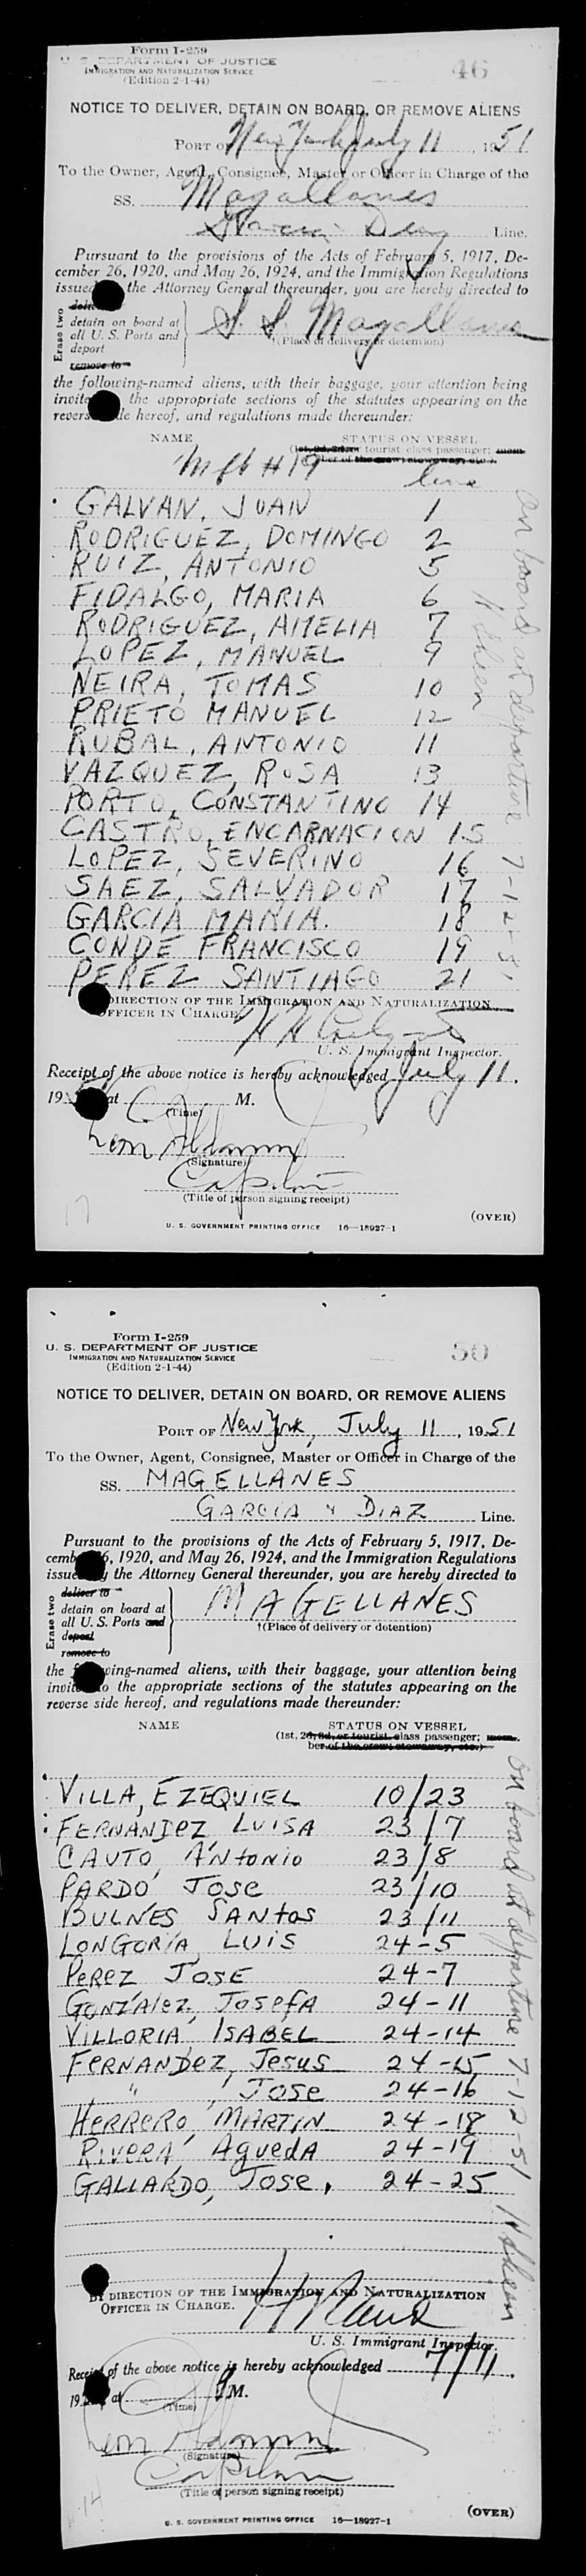 Form I-259
46
U. S. DEPARTMENT OF JUSTICE
IMMIGRATION AND NATURALIZATION SERVICE
(Edition 2-1-44)
NOTICE TO DELIVER, DETAIN ON BOARD, OR REMOVE ALIENS
PORT OF New York July 11, 1951
To the Owner, Agent, Consignee, Master or Officer in Charge of the
SS. Magallanes
Garcia Diaz Line.
Pursuant to the provisions of the Acts of February 5, 1917, De-
cember 26, 1920, and May 26, 1924, and the Immigration Regulations
issued the Attorney General thereunder, you are hereby directed to
Erase two
deliver to
detain on board at
all U. S. Ports and
deport
remove to
S. S. Magallanes
†(Place of delivery or detention)
the following-named aliens, with their baggage, your attention being
invite the appropriate sections of the statutes appearing on the
reverse side hereof, and regulations made thereunder:
NAME STATUS ON VESSEL
(1st, 2d, 3d, or tourist class passenger; mem-
ber of the crew; stowaway, etc.)
Mft #19 line
GALVAN, JUAN 1
RODRIGUEZ, DOMINGO 2
RUIZ, ANTONIO 5
FIDALGO, MARIA 6
RODRIGUEZ, AMELIA 7
LOPEZ, MANUEL 9
NEIRA, TOMAS 10
PRIETO MANUEL 12
RUBAL, ANTONIO 11
VAZQUEZ, ROSA 13
PORTO, CONSTANTINO 14
CASTRO, ENCARNACION 15
LOPEZ, SEVERINO 16
SAEZ, SALVADOR 17
GARCIA MARIA. 18
CONDE FRANCISCO 19
PEREZ SANTIAGO 21
on board at departure 7-12-51
DIRECTION OF THE IMMIGRATION AND NATURALIZATION
OFFICER IN CHARGE.
U. S. Immigrant Inspector.
Receipt of the above notice is hereby acknowledged July 11.
19 at M.
(Time)
(Signature)
Capitan
(Title of person signing receipt)
17
(OVER)
U. S. GOVERNMENT PRINTING OFFICE 16—18927-1
Form I-259
50
U. S. DEPARTMENT OF JUSTICE
IMMIGRATION AND NATURALIZATION SERVICE
(Edition 2-1-44)
NOTICE TO DELIVER, DETAIN ON BOARD, OR REMOVE ALIENS
PORT OF New York, July 11, 1951
To the Owner, Agent, Consignee, Master or Officer in Charge of the
SS. MAGELLANES
GARCIA Y DIAZ Line.
Pursuant to the provisions of the Acts of February 5, 1917, De-
cemb 6, 1920, and May 26, 1924, and the Immigration Regulations
issued y the Attorney General thereunder, you are hereby directed to
Erase two
deliver to
detain on board at
all U. S. Ports and
deport
remove to
MAGELLANES
†(Place of delivery or detention)
the f wing-named aliens, with their baggage, your attention being
invit o the appropriate sections of the statutes appearing on the
reverse side hereof, and regulations made thereunder:
NAME STATUS ON VESSEL
(1st, 2d, 3d, or tourist class passenger; mem-
ber of the crew; stowaway, etc.)
VILLA, EZEQUIEL 10/23
FERNANDEZ, LUISA 23/7
CAUTO, ANTONIO 23/8
PARDO JOSE 23/10
BULNES SANTOS 23/11
LONGORIA, LUIS 24-5
PEREZ JOSE 24-7
GONZALEZ, JOSEFA 24-11
VILLORIA ISABEL 24-14
FERNANDEZ, JESUS 24-15
" , JOSE 24-16
HERRERO, MARTIN 24-18
RIVERA, AGUEDA 24-19
GALLARDO, JOSE, 24-25
on board at departure 7-12-51
BY DIRECTION OF THE IMMIGRATION AND NATURALIZATION
OFFICER IN CHARGE.
U. S. Immigrant Inspector.
Receipt of the above notice is hereby acknowledged 7/11.
19 at M.
(Time)
(Signature)
Capitan
(Title of person signing receipt)
14
(OVER)
U. S. GOVERNMENT PRINTING OFFICE 16—18927-1